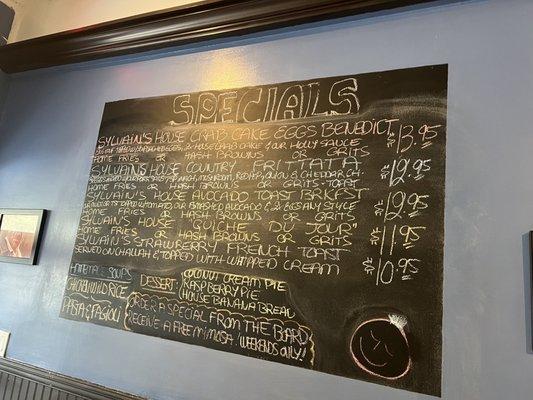 SPECIALS
SYLVAIN'S HOUSE CRAB CAKE EGGS BENEDICT 13.95
POACHED EGGS, 2 HOUSE CRAB CAKE & OUR HOLLY SAUCE
HOME FRIES OR HASH BROWNS OR GRITS
SYLVAIN'S HOUSE COUNTRY FRITTATA 12.95
ONION & CHEDDAR CH.
HOME FRIES OR HASH BROWNS OR GRITS-TOAST
SYLVAIN'S HOUSE AVOCADO TOAST BRKFEST 12.95
TOPPED W/ TOMATO AVOCADO & 2 EGGS ANY STYLE
HOME FRIES OR HASH BROWNS OR GRITS
SYLVAIN'S HOUSE "QUICHE DU JOUR" 11.95
HOME FRIES OR HASH BROWNS OR GRITS
SYLVAIN'S STRAWBERRY FRENCH TOAST 10.95
SERVED ON CHALLAH & TOPPED WITH WHIPPED CREAM
HOMEMADE SOUPS
CHICKEN WILD RICE
PASTA & FAGIOLI
DESSERT:
COCONUT CREAM PIE
RASPBERRY PIE
HOUSE BANANA BREAD
ORDER A SPECIAL FROM THE BOARD
RECEIVE A FREE MIMOSA! WEEKENDS ONLY!